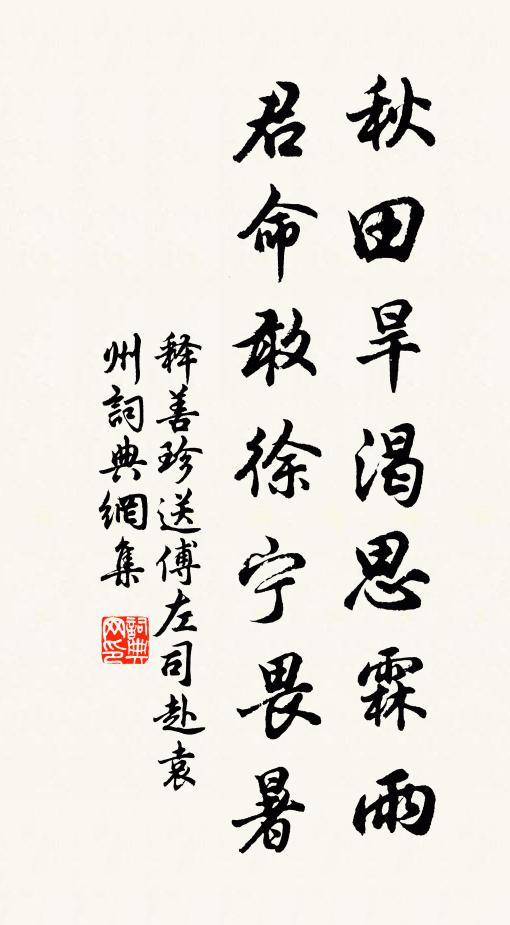 秋田旱渴思霖雨
君命敢徐宁畏暑
释善珍送傅左司赴袁
州詞典網集
詞典网印